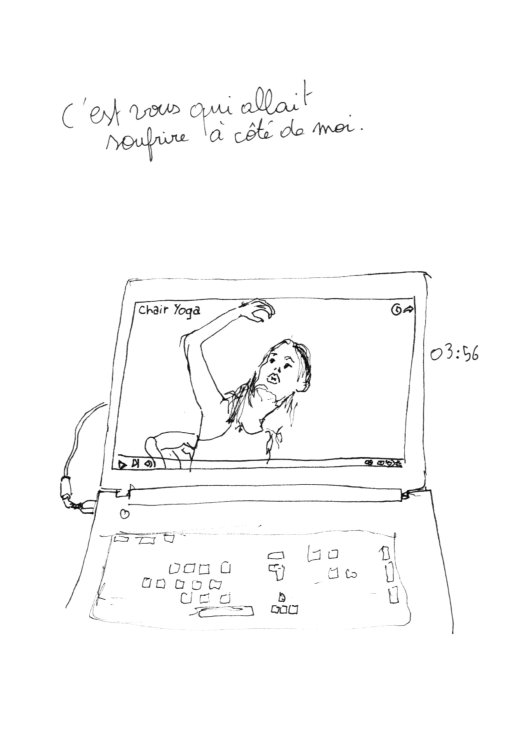 C'est vous qui allait
soufrire à côté de moi.
Chair Yoga
03:56